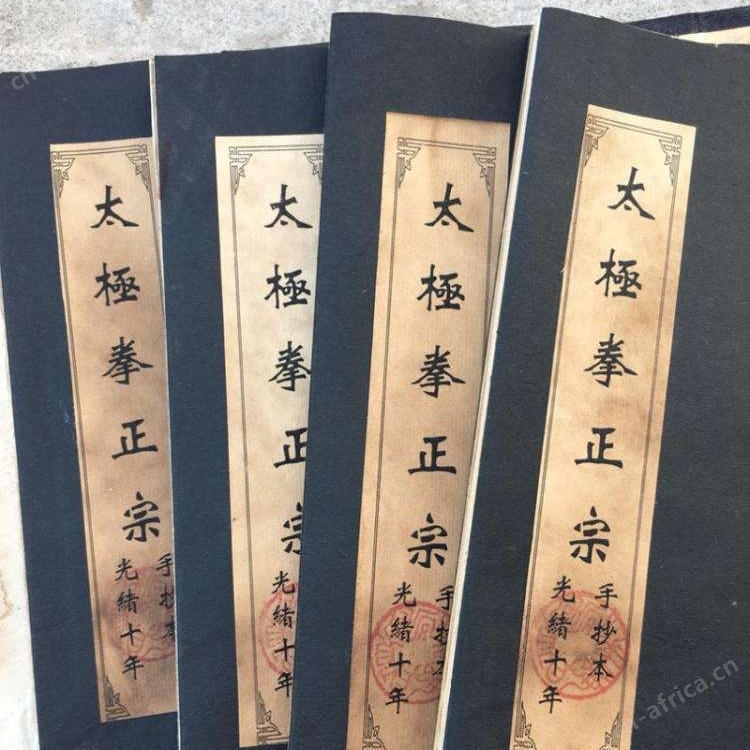 太極拳正宗
手抄本
光緒十年
太極拳正宗
光緒十年
太極拳正宗
手抄本
光緒十年
太極拳正宗
手抄本
光緒十年
-africa.cn